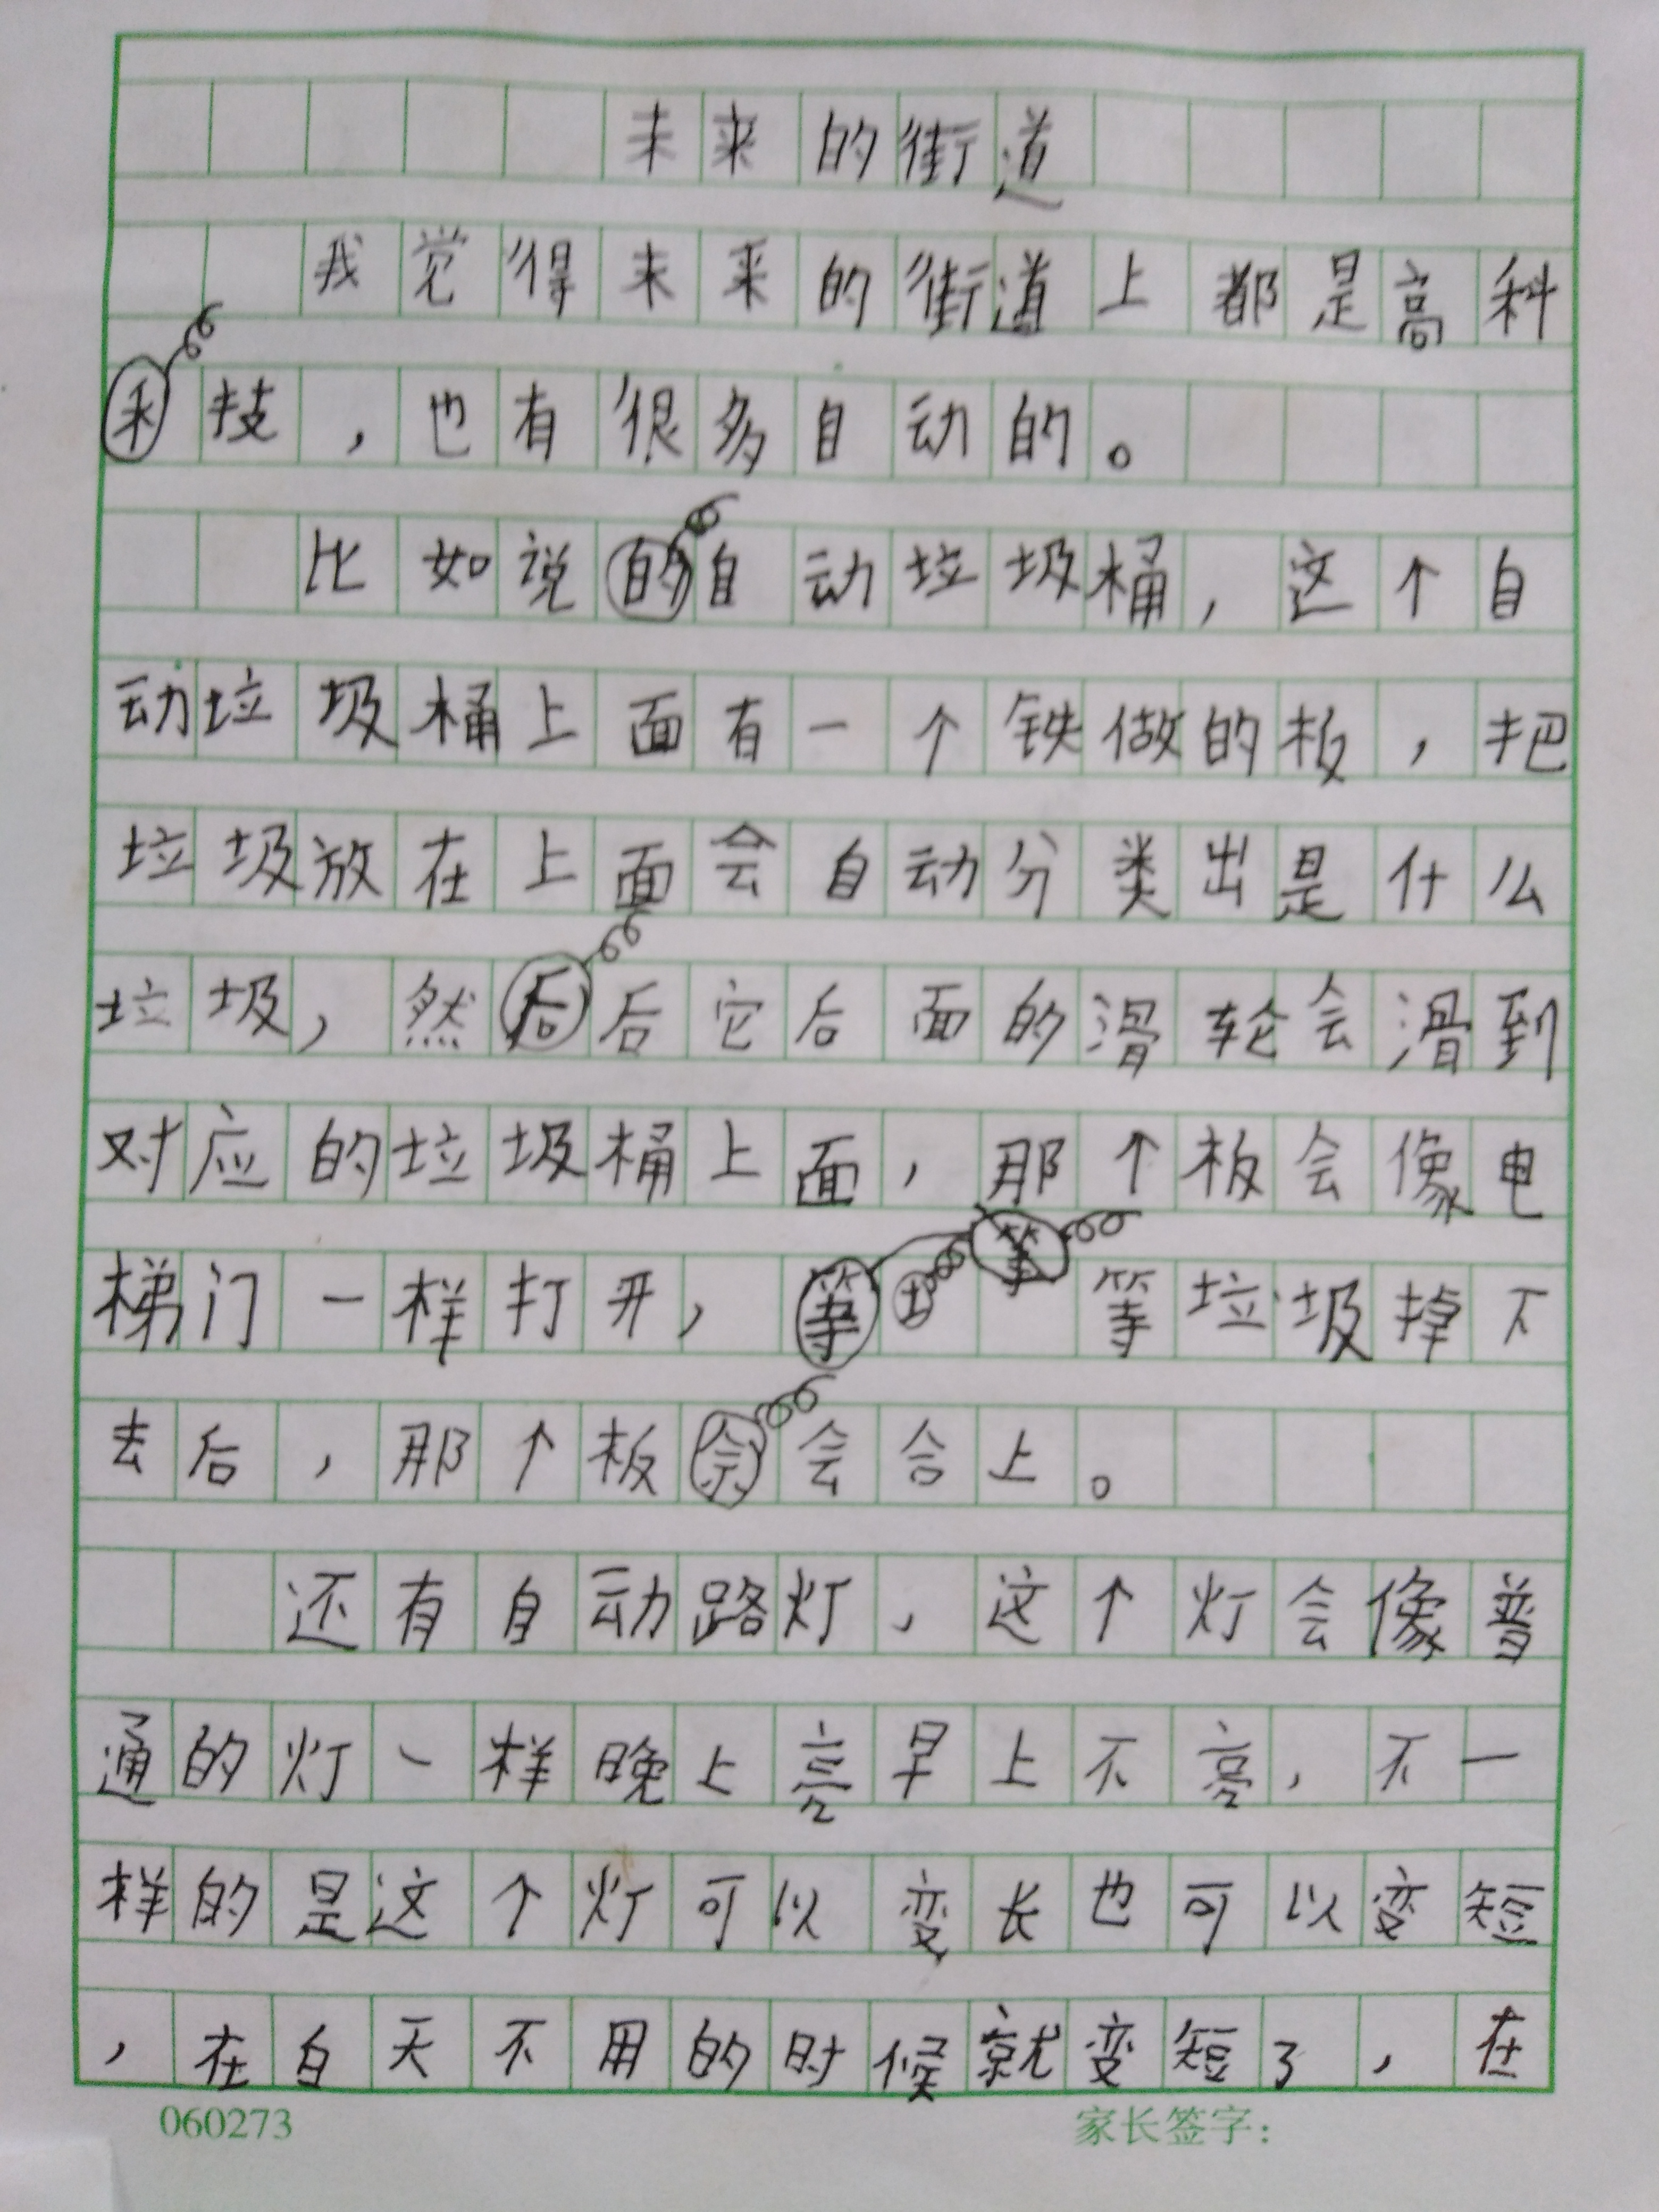 未来的街道
我觉得未来的街道上都是高科
技，也有很多自动的。
比如说自动垃圾桶，这个自
动垃圾桶上面有一个铁做的板，把
垃圾放在上面会自动分类出是什么
垃圾，然后它后面的滑轮会滑到
对应的垃圾桶上面，那个板会像电
梯门一样打开，等垃圾掉下
去后，那个板会合上。
还有自动路灯，这个灯会像普
通的灯一样晚上亮早上不亮，不一
样的是这个灯可以变长也可以变短
，在白天不用的时候就变短了，在
060273 家长签字：